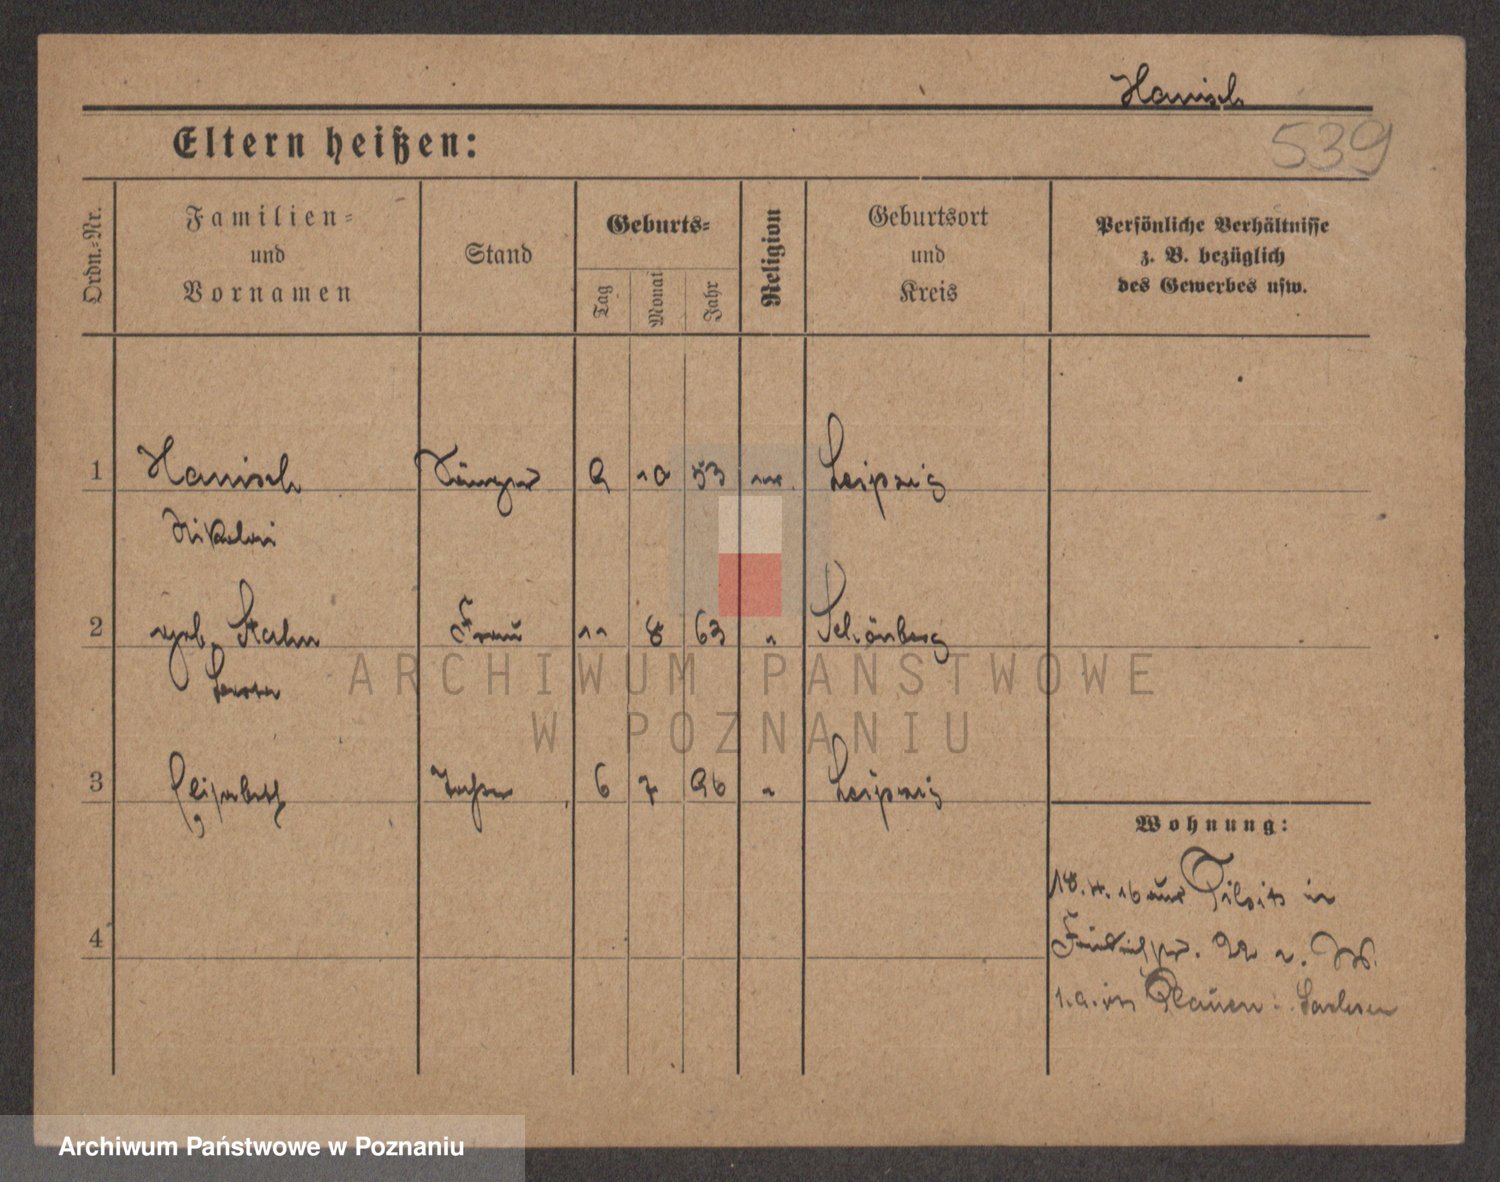 Hanisch
539
Eltern heißen:
Ordn.-Nr.
Familien-
und
Vornamen
Stand
Geburts-
Tag
Monat
Jahr
Religion
Geburtsort
und
Kreis
Persönliche Verhältnisse
z. B. bezüglich
des Gewerbes usw.
1 Hanisch Sänger 9 10 53 Leipzig
Nikolai
2 geb. Stahn Frau 11 8 63 " Schönberg
3 Elisabeth Tochter 6 7 96 " Leipzig
Wohnung:
18. 4. 16 aus Tilsit in
22
in Plauen i. Sachsen
4
ARCHIWUM PAŃSTWOWE
W POZNANIU
Archiwum Państwowe w Poznaniu